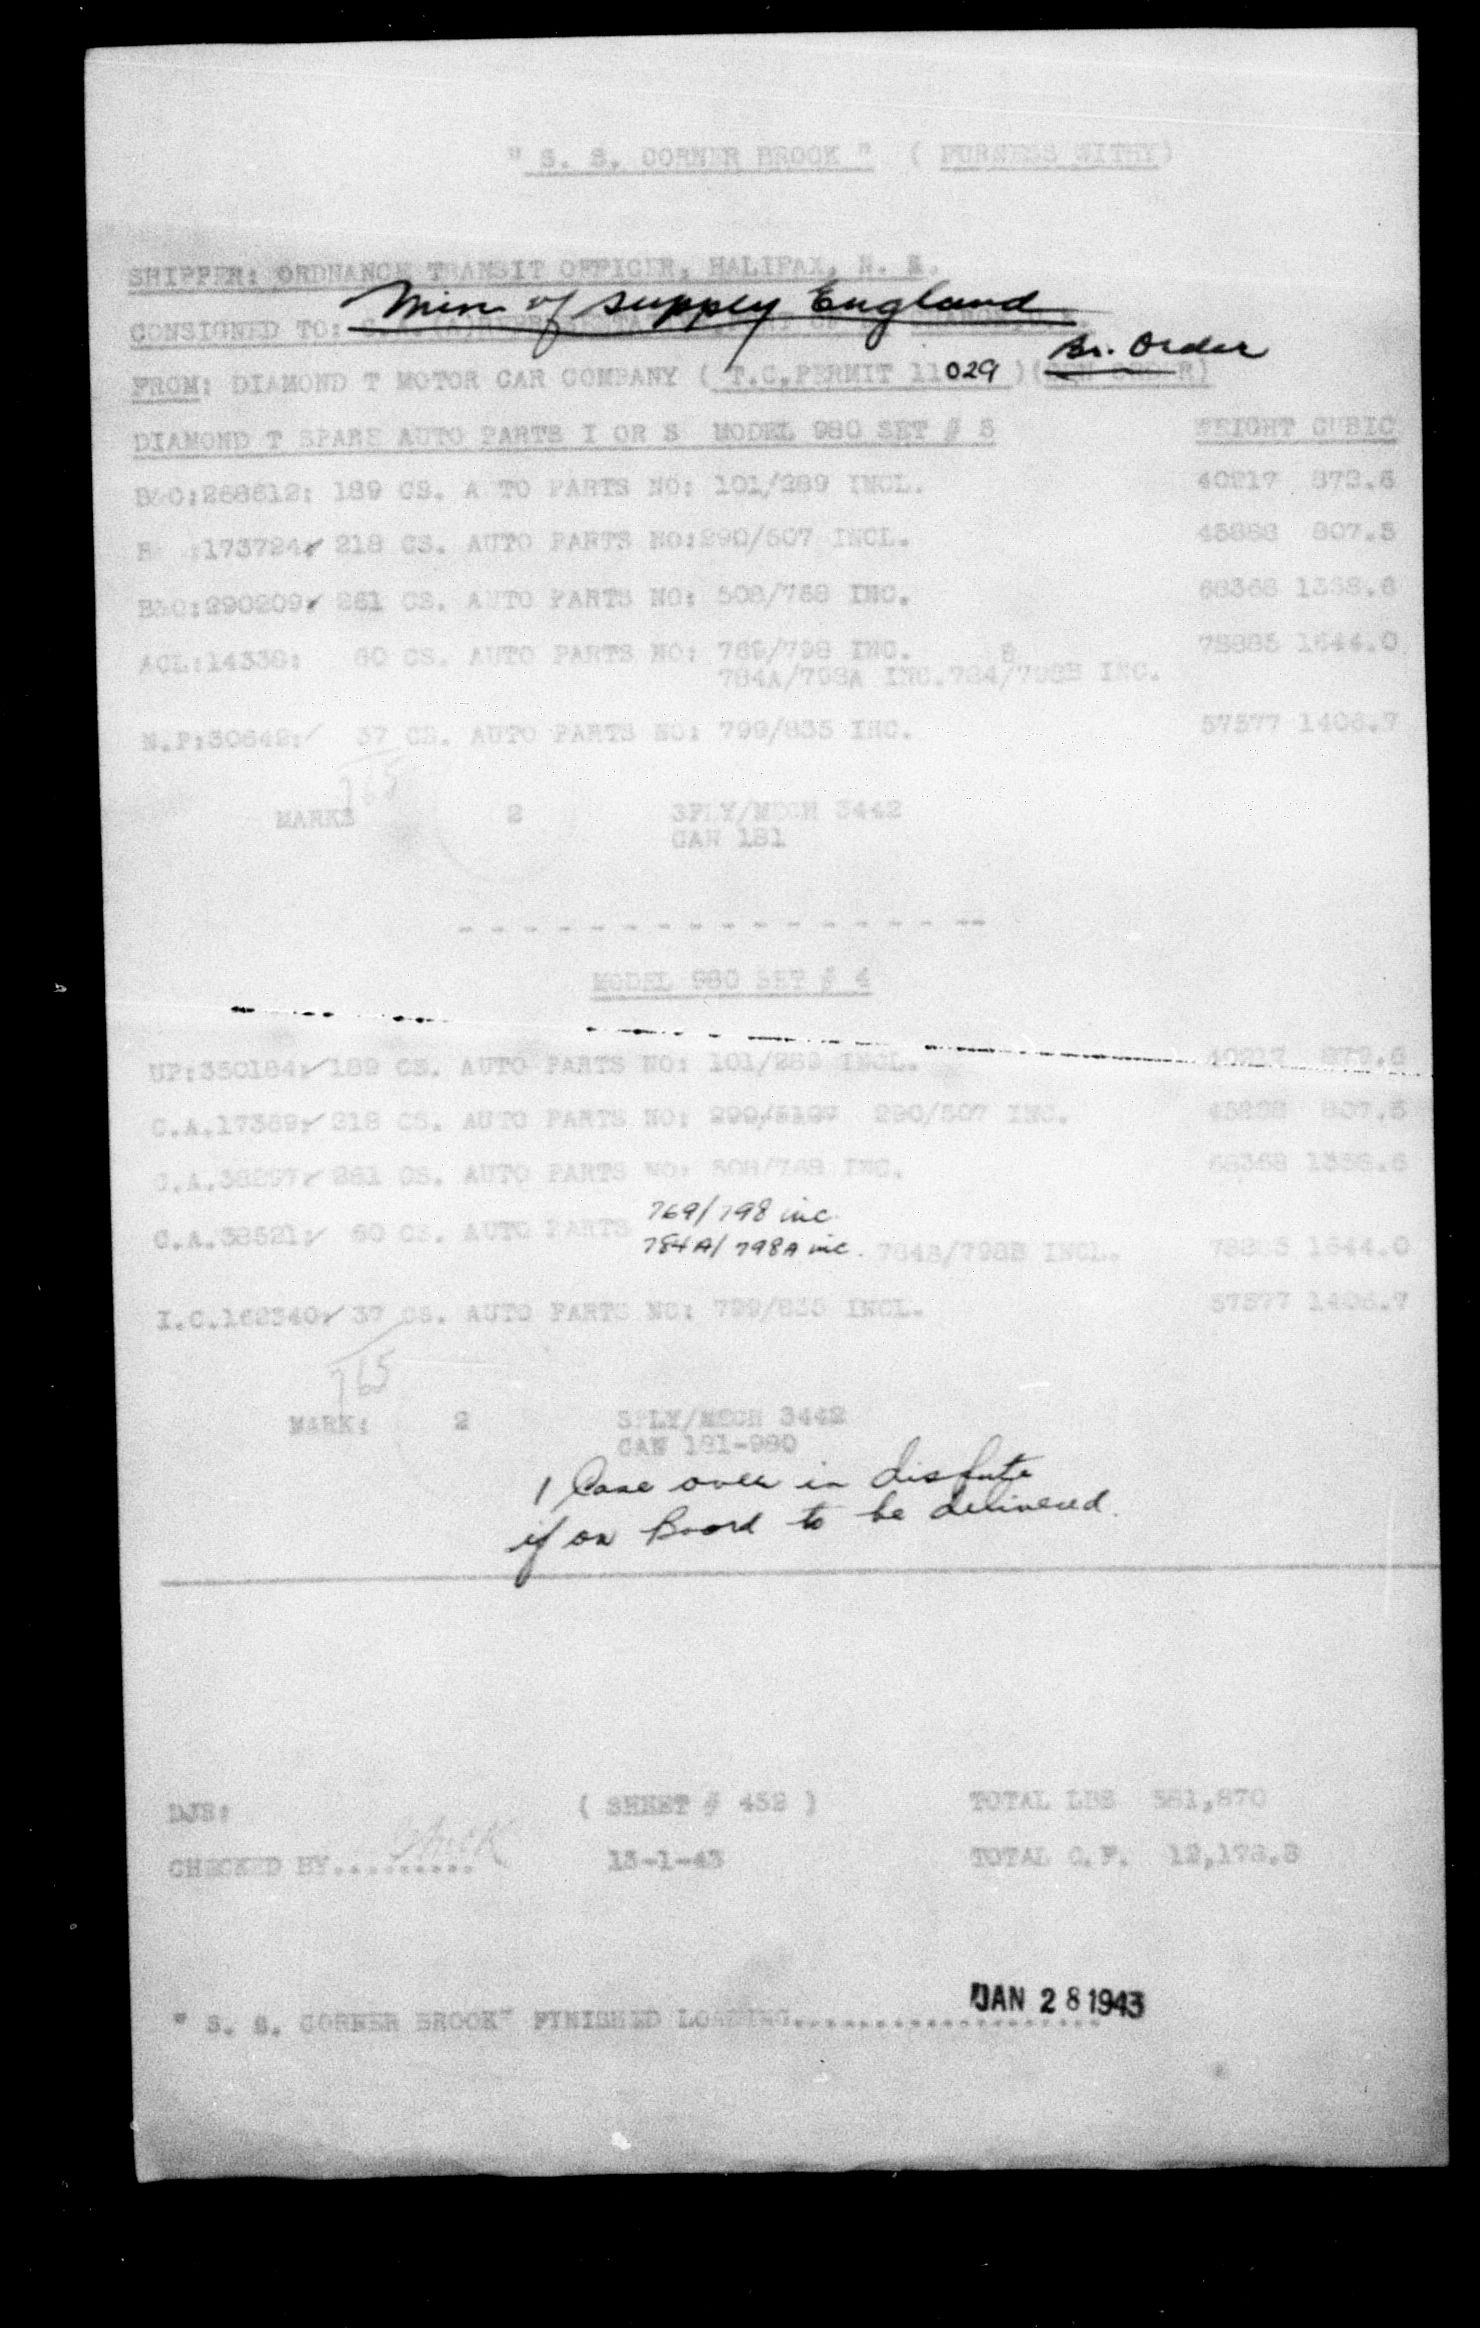 " S. S. CORNER BROOK " ( FURNESS WITHY)
SHIPPER: ORDNANCE TRANSIT OFFICER, HALIFAX, N. S.
Min of Supply England
CONSIGNED TO:
Br. Order
FROM: DIAMOND T MOTOR CAR COMPANY ( T.C.PERMIT 11029 )
DIAMOND T SPARE AUTO PARTS I OR S MODEL 980 SET # 3 WEIGHT CUBIC
B&O:268612: 189 CS. A TO PARTS NO: 101/289 INCL. 40217 873.6
:173724: 218 CS. AUTO PARTS NO:290/507 INCL. 45888 807.5
B&O:290209: 261 CS. AUTO PARTS NO: 508/768 INC. 68368 1358.6
ACL:14338: 60 CS. AUTO PARTS NO: 769/798 INC. 78885 1644.0
784A/798A INC.784B/798B INC.
N.P:30642: 37 CS. AUTO PARTS NO: 799/835 INC. 57577 1406.7
765
MARKS 2 SPLY/MECH 3442
CAN 181
- - - - - - - - - - - - - - - - --
MODEL 980 SET # 4
UP:350184: 189 CS. AUTO PARTS NO: 101/289 INCL. 40217 873.6
C.A.17389: 218 CS. AUTO PARTS NO: 290/507 INC. 45888 807.5
C.A.38297: 261 CS. AUTO PARTS NO: 508/768 INC. 68368 1358.6
769/798 inc.
C.A.38521: 60 CS. AUTO PARTS 784A/798A inc. 784B/798B INCL. 78885 1644.0
I.C.162340: 37 CS. AUTO PARTS NO: 799/835 INCL. 57577 1406.7
765
MARK: 2 SPLY/MECH 3442
CAN 181-980
1 Case over in dispute
if on Board to be delivered.
DJS: ( SHEET # 452 ) TOTAL LBS 581,870
CHECKED BY......... 13-1-43 TOTAL C.F. 12,178.8
" S. S. CORNER BROOK" FINISHED LOADING.................... JAN 28 1943